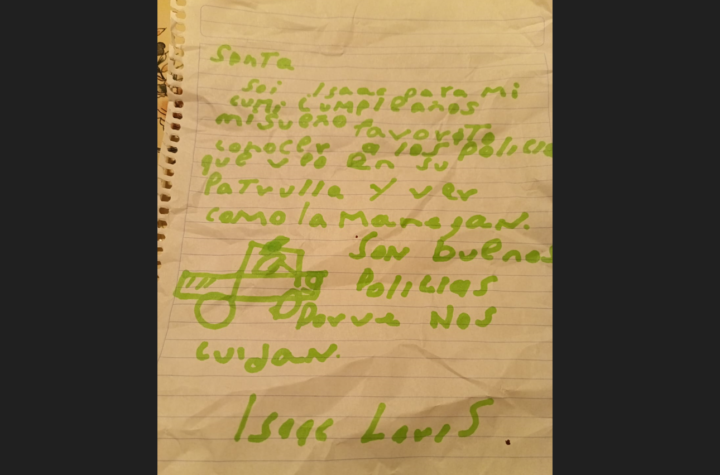 Santa
Soi Isaac para mi
cumpi cumpleaños
misueño favorito
conocer a los policia
que veo en su
Patrulla y ver
como la Manegan.
Son buenos
Policias
Porue Nos
cuidan.
Isaac